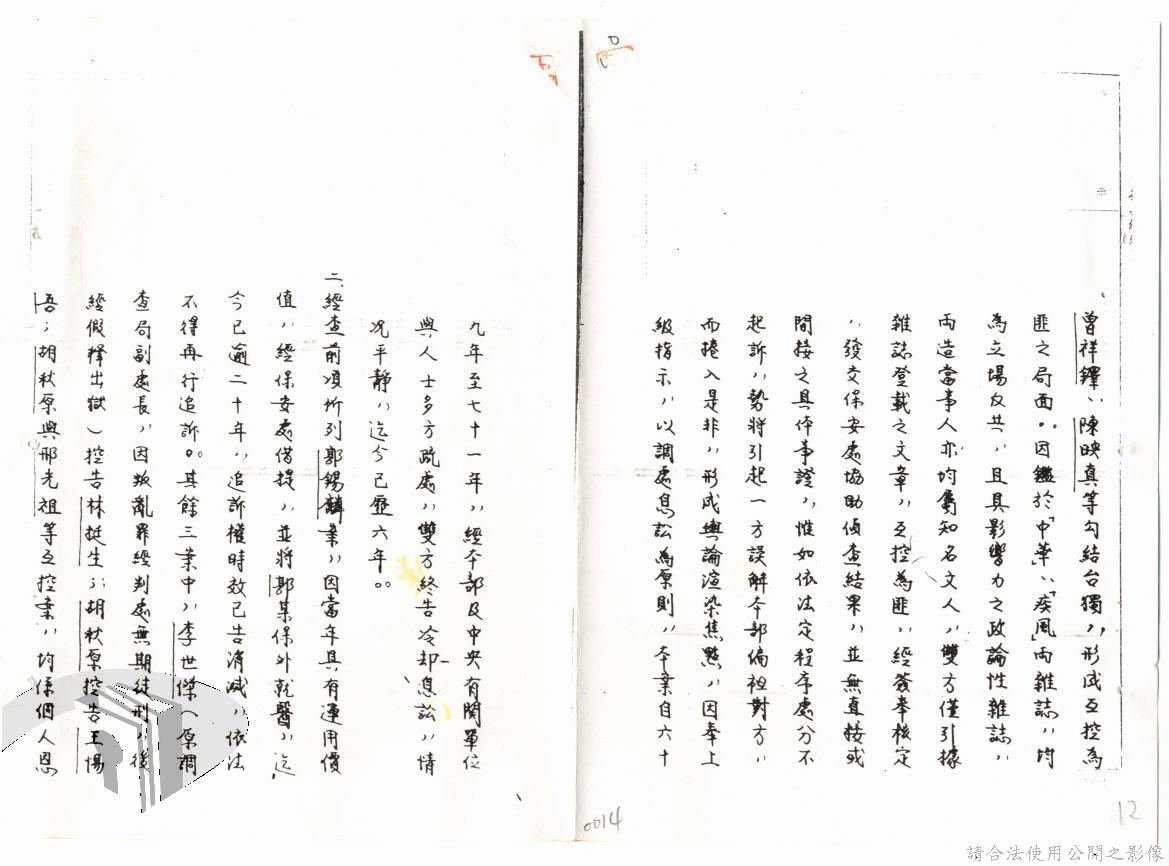 曾祥鐸、陳映真等勾結台獨，形成互控為
匪之局面。因鑑於「中華」、「疾風」兩雜誌，均
為立場反共，且具影響力之政論性雜誌，
兩造當事人亦均屬知名文人，雙方僅引據
雜誌登載之文章，互控為匪，經簽奉核定
，發交保安處協助偵查結果，並無直接或
間接之具体事證，惟如依法定程序處分不
起訴，勢將引起一方誤解本部偏袒對方，
而捲入是非，形成輿論渲染焦點，因奉上
級指示，以調處息訟為原則，本案自六十
九年至七十一年，經本部及中央有関單位
與人士多方疏處，雙方終告冷却息訟，情
況平靜，迄今已歷六年。
二、經查前項所列郭錫麟案，因當年具有運用價
值，經保安處借提，並將郭某保外就醫，迄
今已逾二十年，追訴權時效已告消滅，依法
不得再行追訴。其餘三案中，李世傑（原調
查局副處長，因叛亂罪經判處無期徒刑，後
經假釋出獄）控告林挺生；胡秋原控告王惕
吾；胡秋原與邢光祖等互控案，均係個人恩
0014
12
請合法使用公開之影像